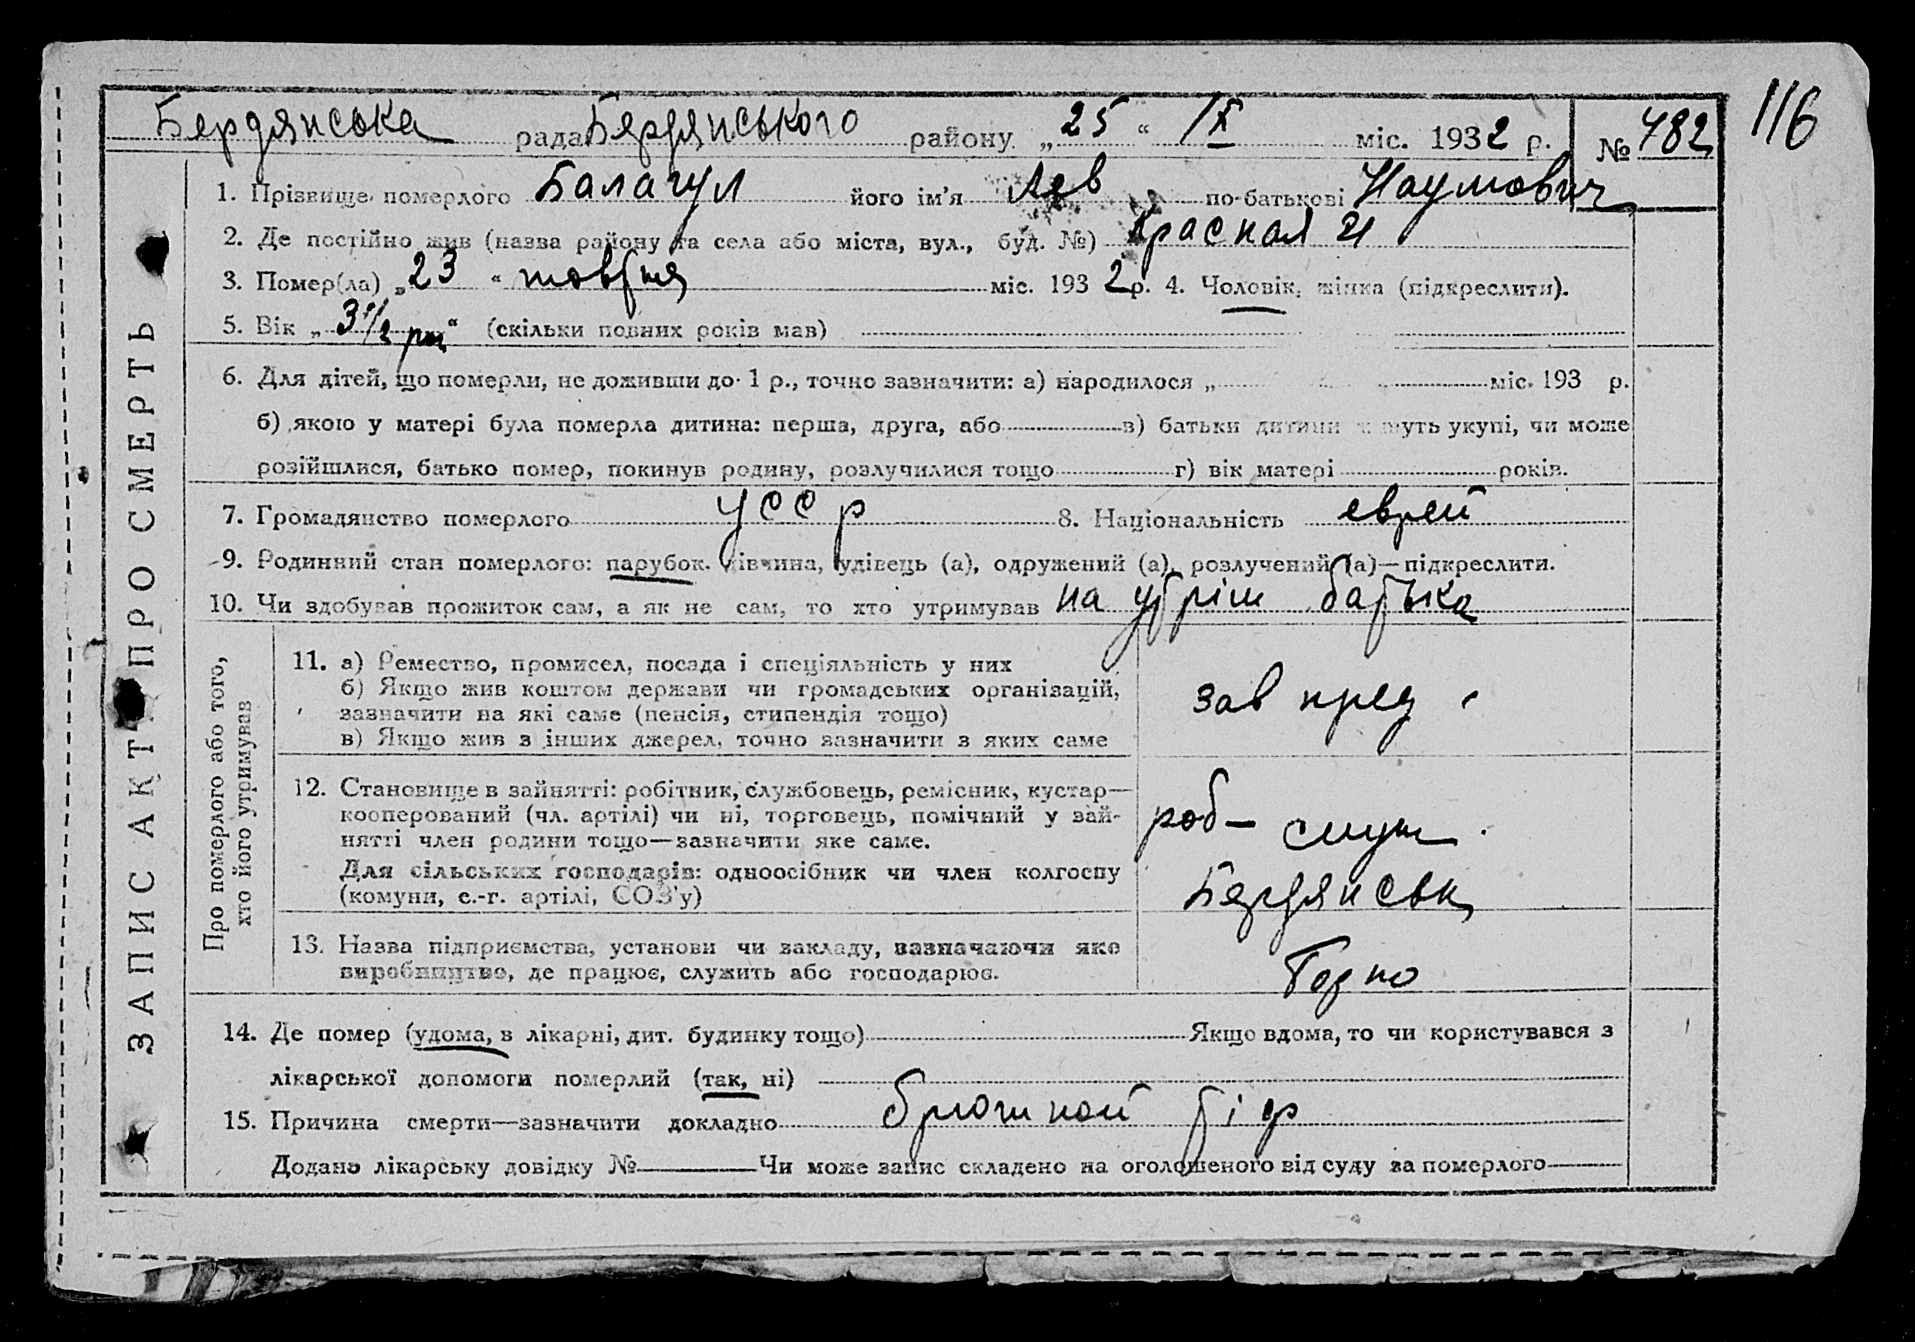 116
Бердянська рада Бердянського району „25“ IX міс. 1932 р. № 482
ЗАПИС АКТУ ПРО СМЕРТЬ
1. Прізвище померлого Балагул його ім'я Лев по-батькові Наумович
2. Де постійно жив (назва району та села або міста, вул., буд. №) Красная 21
3. Помер(ла) „23“ жовтня міс. 1932 р. 4. Чоловік, жінка (підкреслити).
5. Вік „3 1/2 рок“ (скільки повних років мав)
6. Для дітей, що померли, не доживши до 1 р., точно зазначити: а) народилося „ міс. 193 р.
б) якою у матері була померла дитина: перша, друга, або в) батьки дитини живуть укупі, чи може
розійшлися, батько помер, покинув родину, розлучилися тощо г) вік матері років.
7. Громадянство померлого УССР 8. Національність еврей
9. Родинний стан померлого: парубок. дівчина, удівець (а), одружений (а), розлучений (а)—підкреслити.
10. Чи здобував прожиток сам, а як не сам, то хто утримував на утрім батька
Про померлого або того,
хто його утримував
11. а) Ремество, промисел, посада і спеціяльність у них
б) Якщо жив коштом держави чи громадських організацій,
зазначити на які саме (пенсія, стипендія тощо)
в) Якщо жив з інших джерел, точно зазначити з яких саме
зав пред
12. Становище в зайнятті: робітник, службовець, ремісник, кустар—
кооперований (чл. артілі) чи ні, торговець, помічний у зай-
нятті член родини тощо—зазначити яке саме.
Для сільських господарів: одноосібник чи член колгоспу
(комуни, с.-г. артілі, СОЗ'у)
роб- служ.
Бердянськ
13. Назва підприємства, установи чи закладу, зазначаючи яке
виробництво, де працює, служить або господарює.
14. Де помер (удома, в лікарні, дит. будинку тощо) Якщо вдома, то чи користувався з
лікарської допомоги померлий (так, ні)
15. Причина смерти—зазначити докладно брюшной
Додано лікарську довідку № Чи може запис складено на оголошеного від суду за померлого